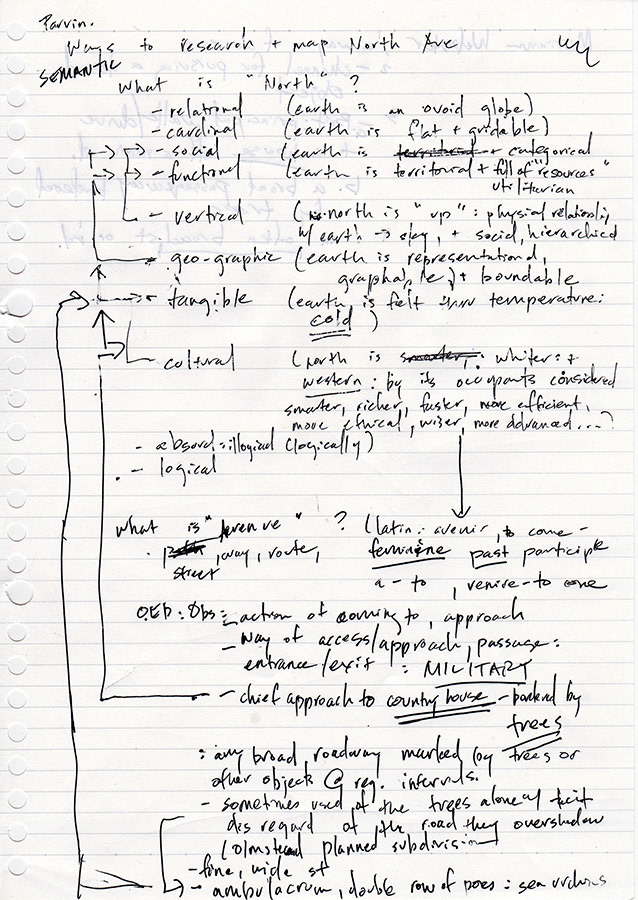 Parvin.
Ways to research + map North Ave
SEMANTIC
What is "North"?
- relational (earth is an ovoid globe)
- cardinal (earth is flat + gridable)
- social (earth is + categorical
- functional (earth is territorial + full of "resources"
utilitarian
- vertical (north is "up": physical relationship
w/ earth → sky, + social, hierarchical
geo-graphic (earth is representational,
graphable) + boundable
tangible (earth is felt temperature:
cold)
cultural (north is whiter: +
western: by its occupants considered
smarter, richer, faster, more efficient,
more ethical, wiser, more advanced...?
- absurd: illogical (logically)
- logical
What is "Avenue"? (latin: avenir, to come -
path, way, route, feminine past participle
street a - to, venire - to come
OED: Obs: - action of coming to, approach
- way of access/approach, passage:
entrance/exit : MILITARY
- chief approach to country house - bordered by
trees
: any broad roadway marked by trees or
other objects @ reg. intervals.
- sometimes used of the trees alone w/ tacit
disregard of the road they overshadow
(Olmstead planned subdivision
- fine, wide st
- ambulacrum, double row of pores: sea urchins